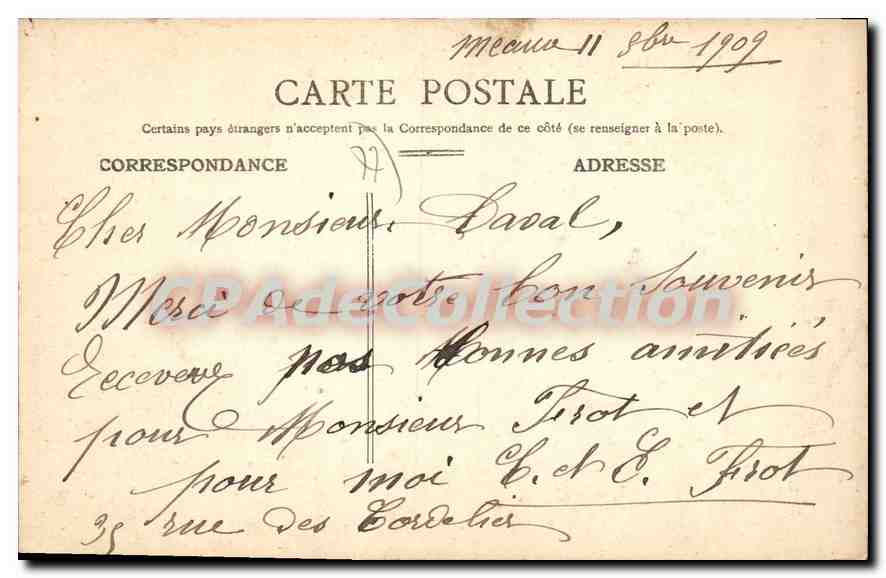 Meaux 11 9bre 1909
CARTE POSTALE
Certains pays étrangers n'acceptent pas la Correspondance de ce côté (se renseigner à la poste).
CORRESPONDANCE
ADRESSE
77
Cher Monsieur Laval,
Merci de votre bon souvenir
Recevez nos bonnes amitiées
pour Monsieur Firot et
pour moi C. et E. Firot
35 rue des Cordelier
CPAdeCollection